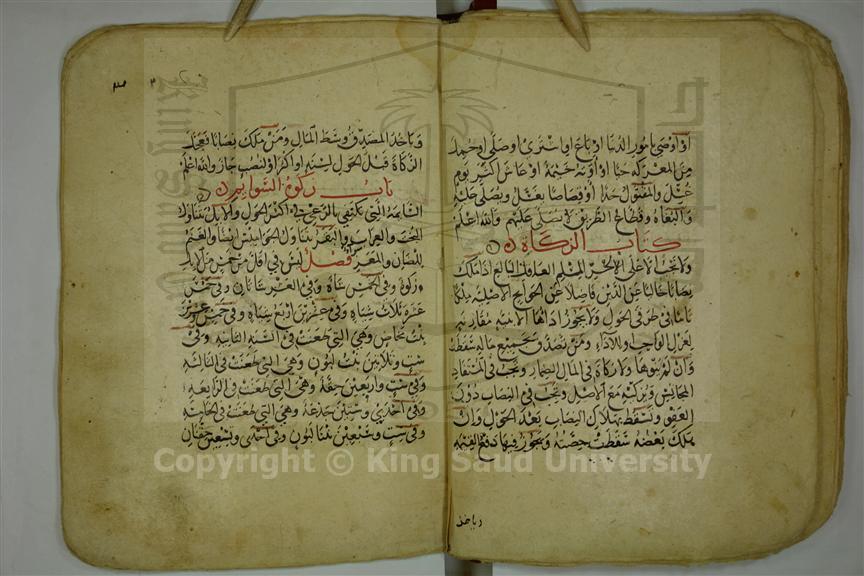 أو أوصى بأمور الدنيا أو باع أو اشترى أو صلى أو حمل
من المعركة حيا أو آوته خيمة أو عاش أكثر يوم
غسل والمقتول حدا أو قصاصا يغسل ويصلى عليه
والبغاة وقطاع الطريق لا يصلى عليهم والله أعلم
كتاب الزكاة
ولا تجب إلا على الحر المسلم العاقل البالغ إذا ملك
نصابا خاليا عن الدين فاضلا عن الحوائج الأصلية ملكا
تاما في طرفي الحول ولا يجوز أداؤها إلا بنية مقارنة
لعزل الواجب وللأداء ومن تصدق بجميع ماله سقطت
وإن لم ينوها ولا زكاة في المال الضمار وتجب في المستفاد
المجانس ويزكيه مع الأصل وتجب في النصاب دون
العفو وتسقط بهلاك النصاب بعد الحول وإن
هلك بعضه سقطت حصته ويجوز فيها دفع القيمة
وياخذ
وياخذ المصدق وسط المال ومن ملك نصابا فعجل
الزكاة قبل الحول لسنة أو أكثر أو لنصب جاز والله أعلم
باب زكوة السوائم
السائمة التي تكتفي بالرعي في أكثر الحول والإبل يتناول
البخت والعراب والبقر يتناول الجواميس أيضا والغنم
للضان والمعز فصل ليس في أقل من خمس من الإبل
زكوة وفي الخمس شاة وفي العشر شاتان وفي خمس
عشرة ثلاث شياه وفي عشرين أربع شياه وفي خمس وعشرين
بنت مخاض وهي التي طعنت في السنة الثانية وفي
ست وثلاثين بنت لبون وهي التي طعنت في الثالثة
وفي ست وأربعين حقة وهي التي طعنت في الرابعة
وفي احدى وستين جذعة وهي التي طعنت في الخامسة
وفي ست وسبعين بنتا لبون وفي احدى وتسعين حقتان
Copyright © King Saud University